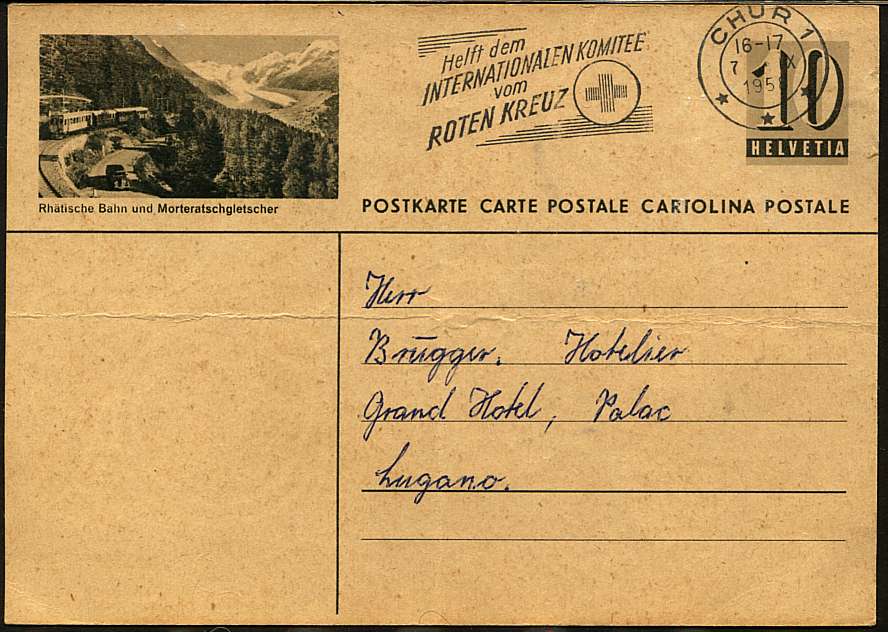 Rhätische Bahn und Morteratschgletscher
Helft dem
INTERNATIONALEN KOMITEE
vom
ROTEN KREUZ
CHUR 1
16-17
7
X
10
HELVETIA
POSTKARTE CARTE POSTALE CARTOLINA POSTALE
Herr
Brügger. Hotelier
Grand Hotel, Palac
Lugano.